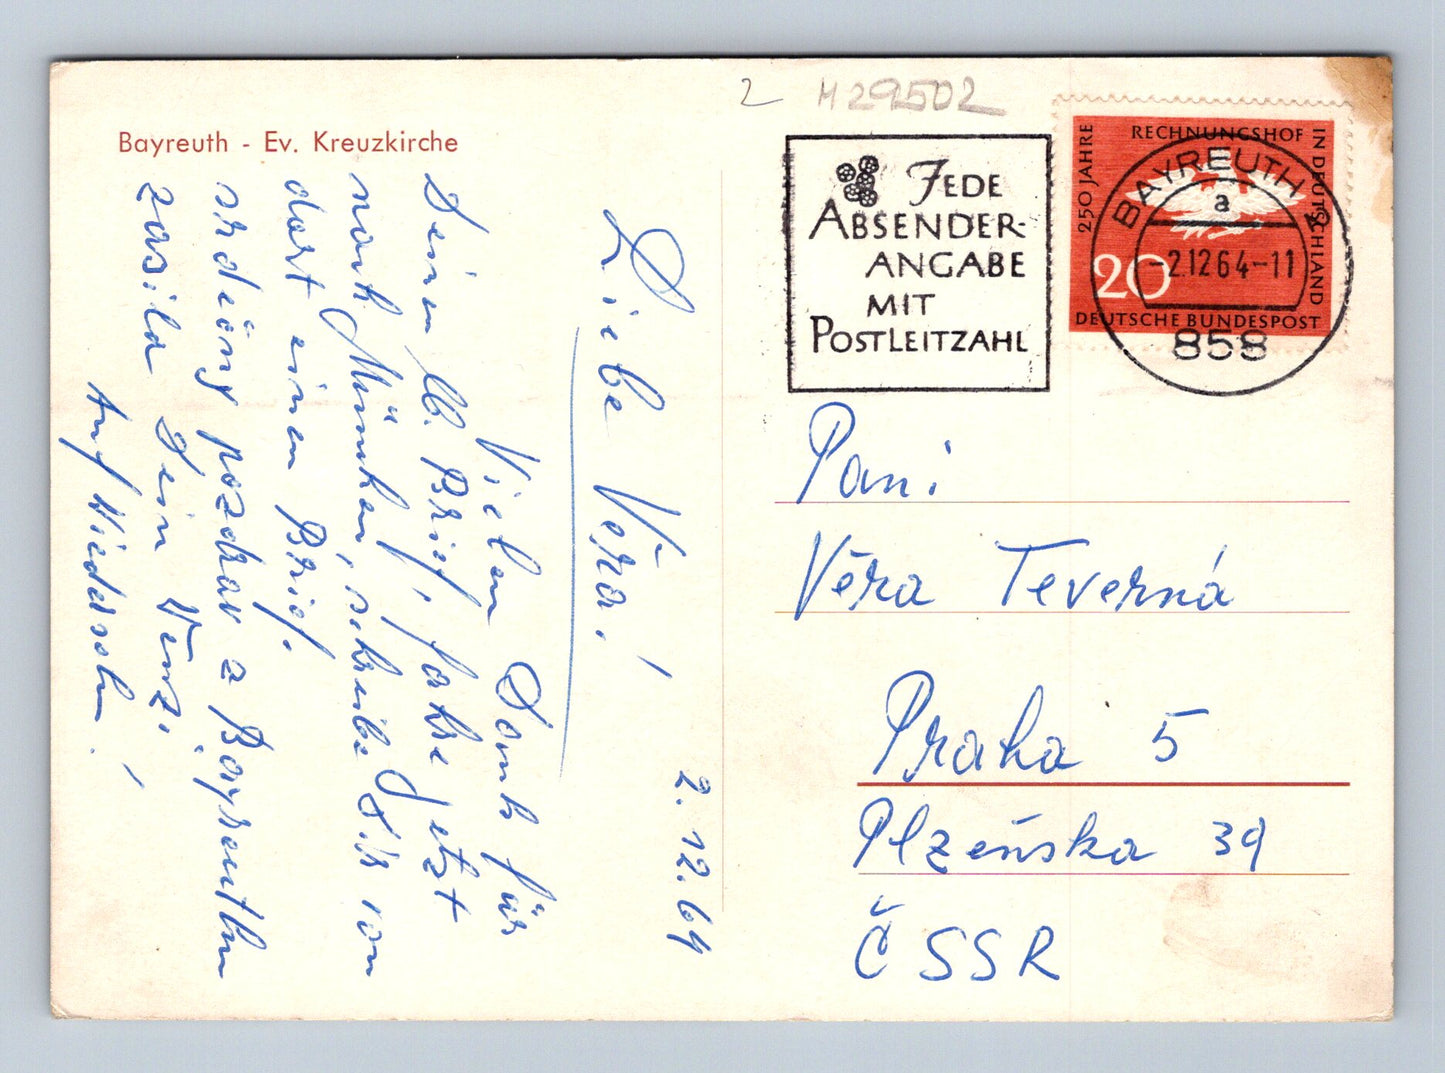 Bayreuth - Ev. Kreuzkirche
2 M29502
JEDE
ABSENDER-
ANGABE
MIT
POSTLEITZAHL
250 JAHRE
RECHNUNGSHOF
IN DEUTSCHLAND
20
DEUTSCHE BUNDESPOST
BAYREUTH
a
-2.12.64-11
858
2.12.64
Liebe Věra!
Vielen Dank für
Deinen lb. Brief, fahre jetzt
nach München, schreibe Dir von
dort einen Brief.
srdečný pozdrav z Bayreuthu
zasílá Dein
Auf Wiedersehn!
Paní
Věra Teverná
Praha 5
Plzeňska 39
ČSSR